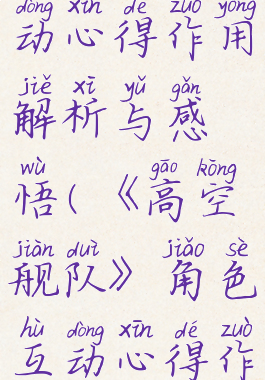 dòng xīn dé zuò yòng
动心得作用
jiě xī yǔ gǎn
解析与感
wù gāo kōng
悟(《高空
jiàn duì jiǎo sè
舰队》 角色
hù dòng xīn dé zuò
互动心得作